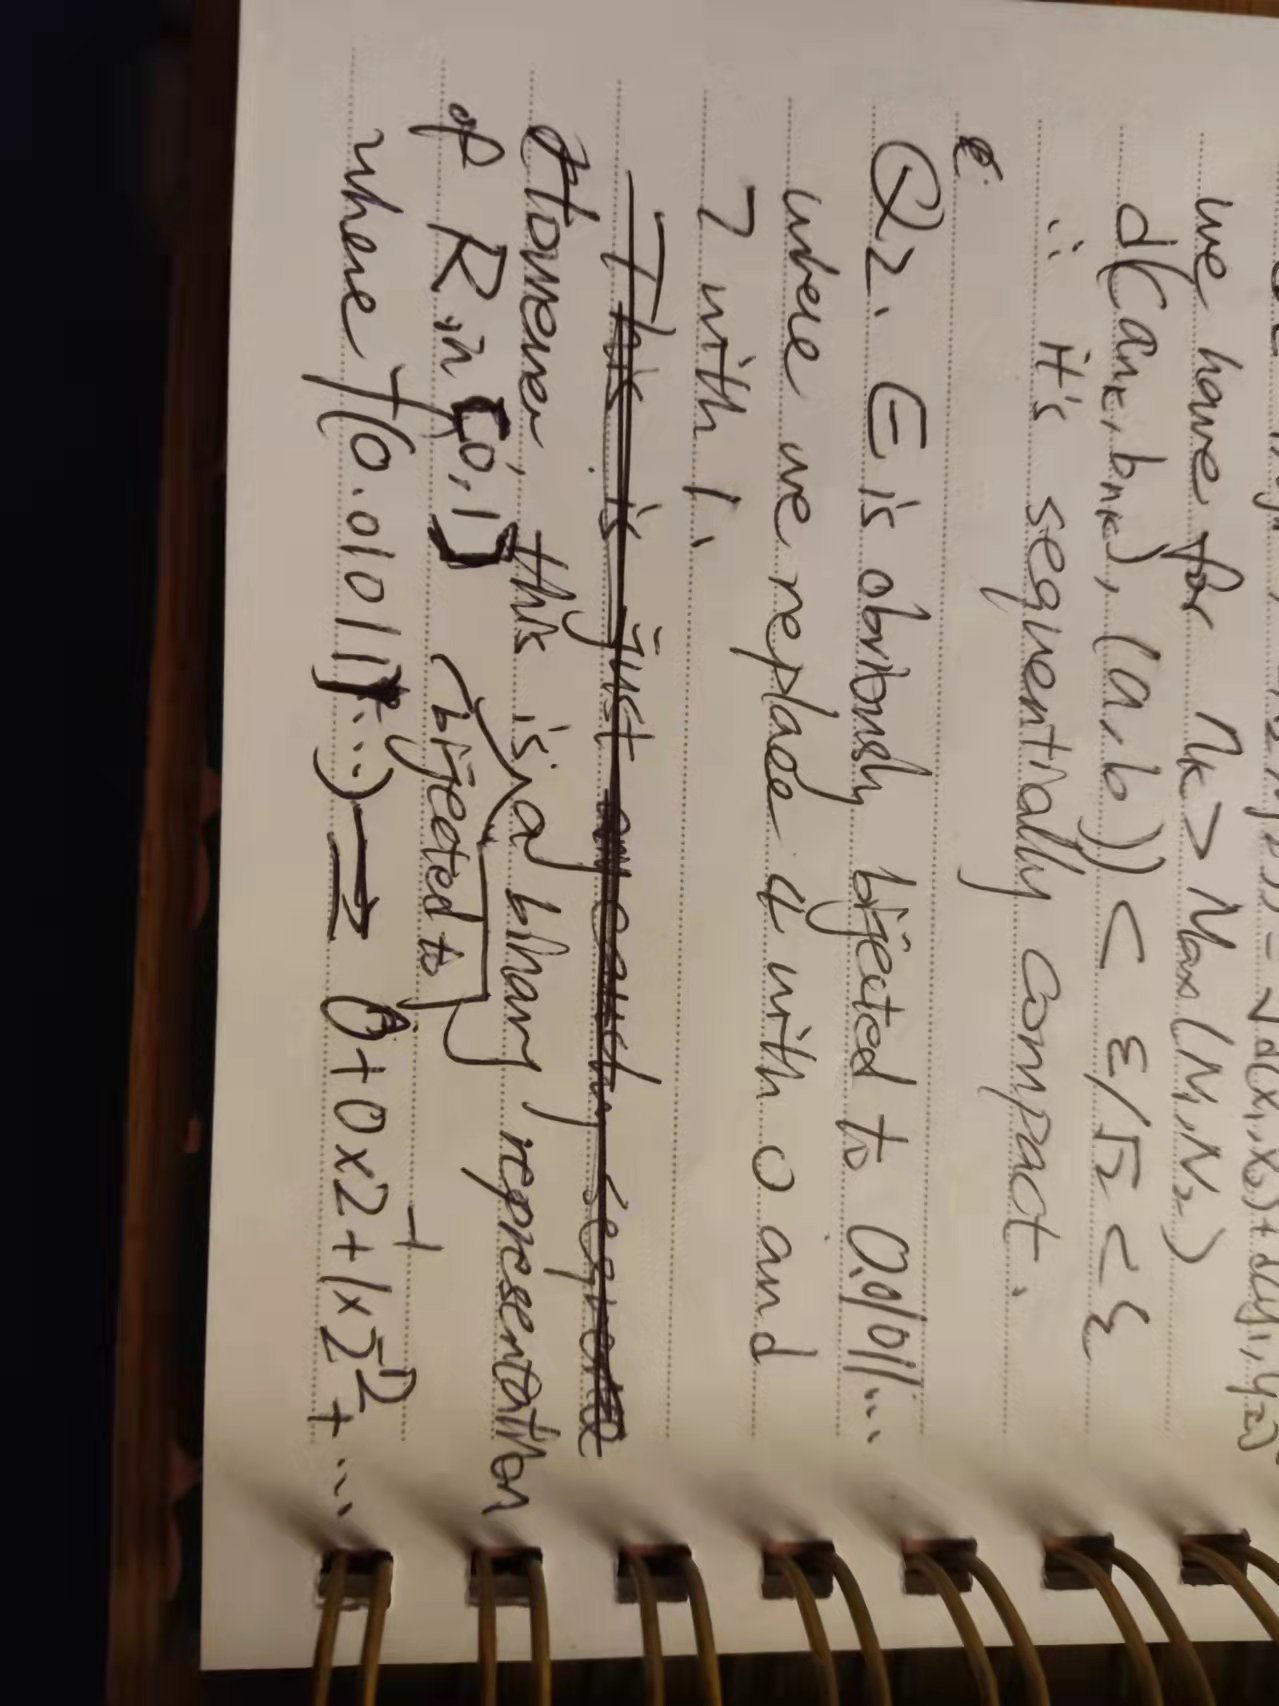 we have for nₖ > Max(N₁, N₂)
d((aₙₖ, bₙₖ), (a, b)) < ε/√2 < ε
∴ it's sequentially compact.
Q2. E is obviously bijected to 0.01011...
where we replace 4 with 0 and
7 with 1.
This is just
However, this is a binary representation
of R in [0,1] (bijected to)
where f(0.01011...) → 0+0×2⁻¹+1×2⁻²+...